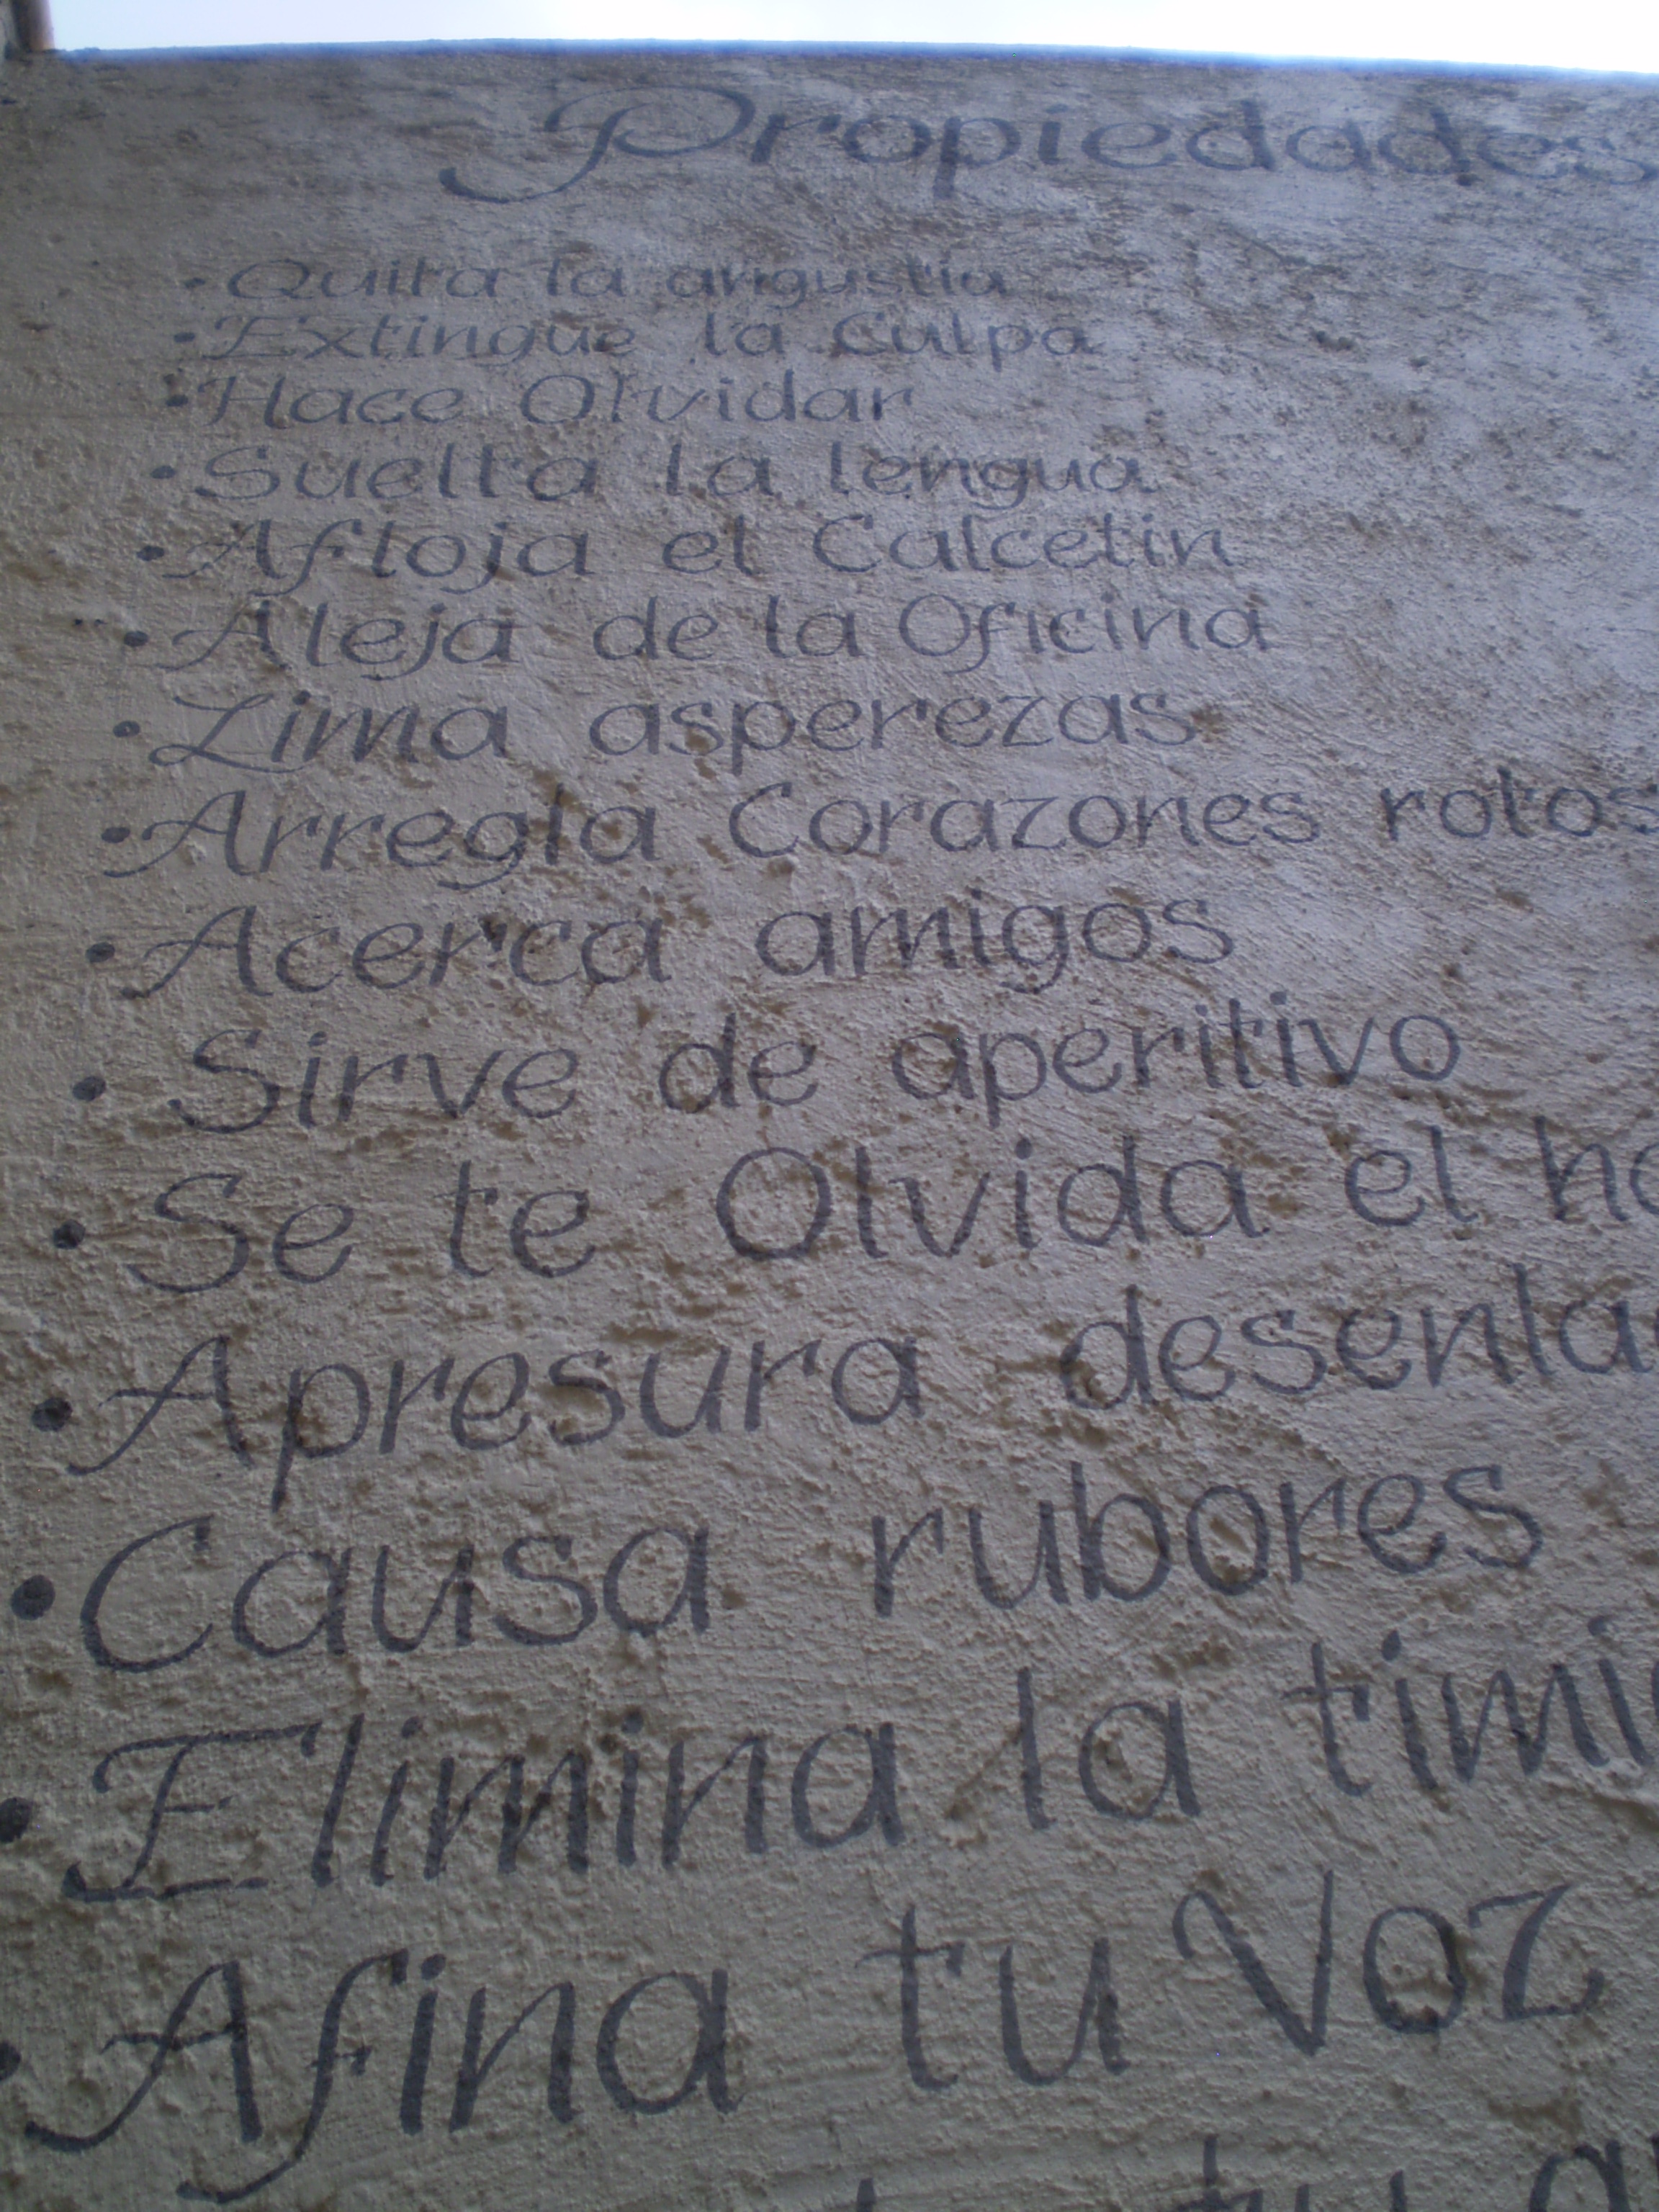 Propiedades
• Quita la angustia
• Extingue la Culpa
• Hace Olvidar
• Suelta la lengua
• Afloja el Calcetin
• Aleja de la Oficina
• Lima asperezas
• Arregla Corazones rotos
• Acerca amigos
• Sirve de aperitivo
• Se te Olvida el
• Apresura
• Causa rubores
• Elimina la
• Afina tu Voz
tu